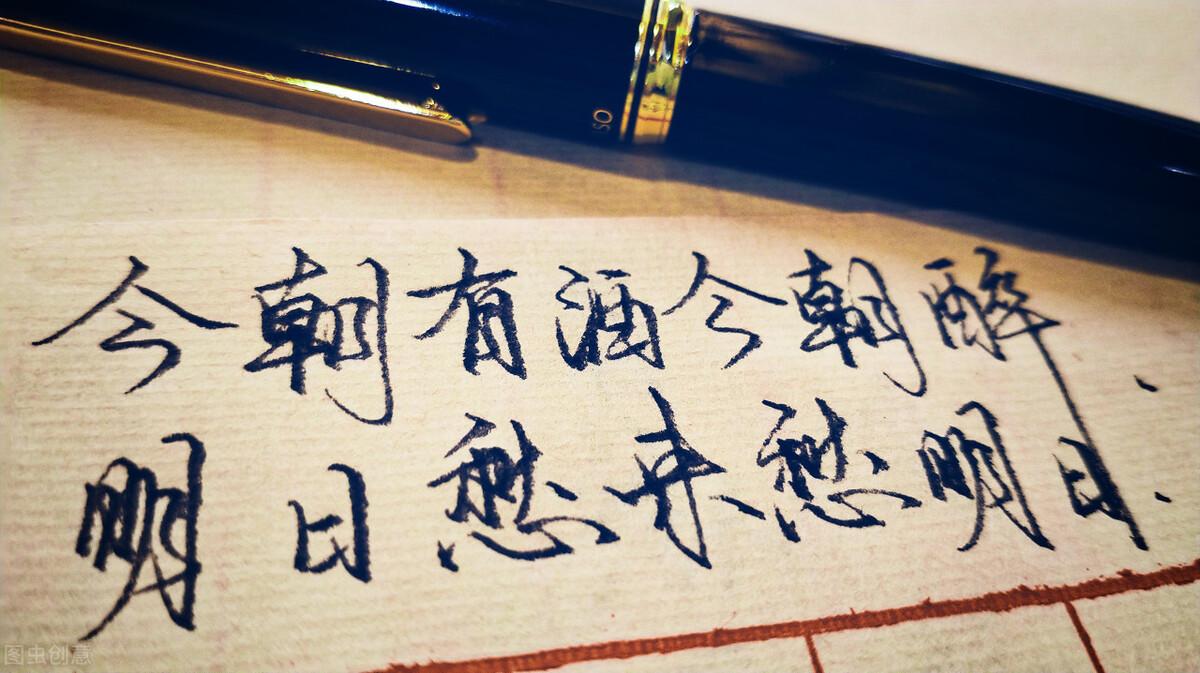 SO
今朝有酒今朝醉、
明日愁来愁明日、
图虫创意